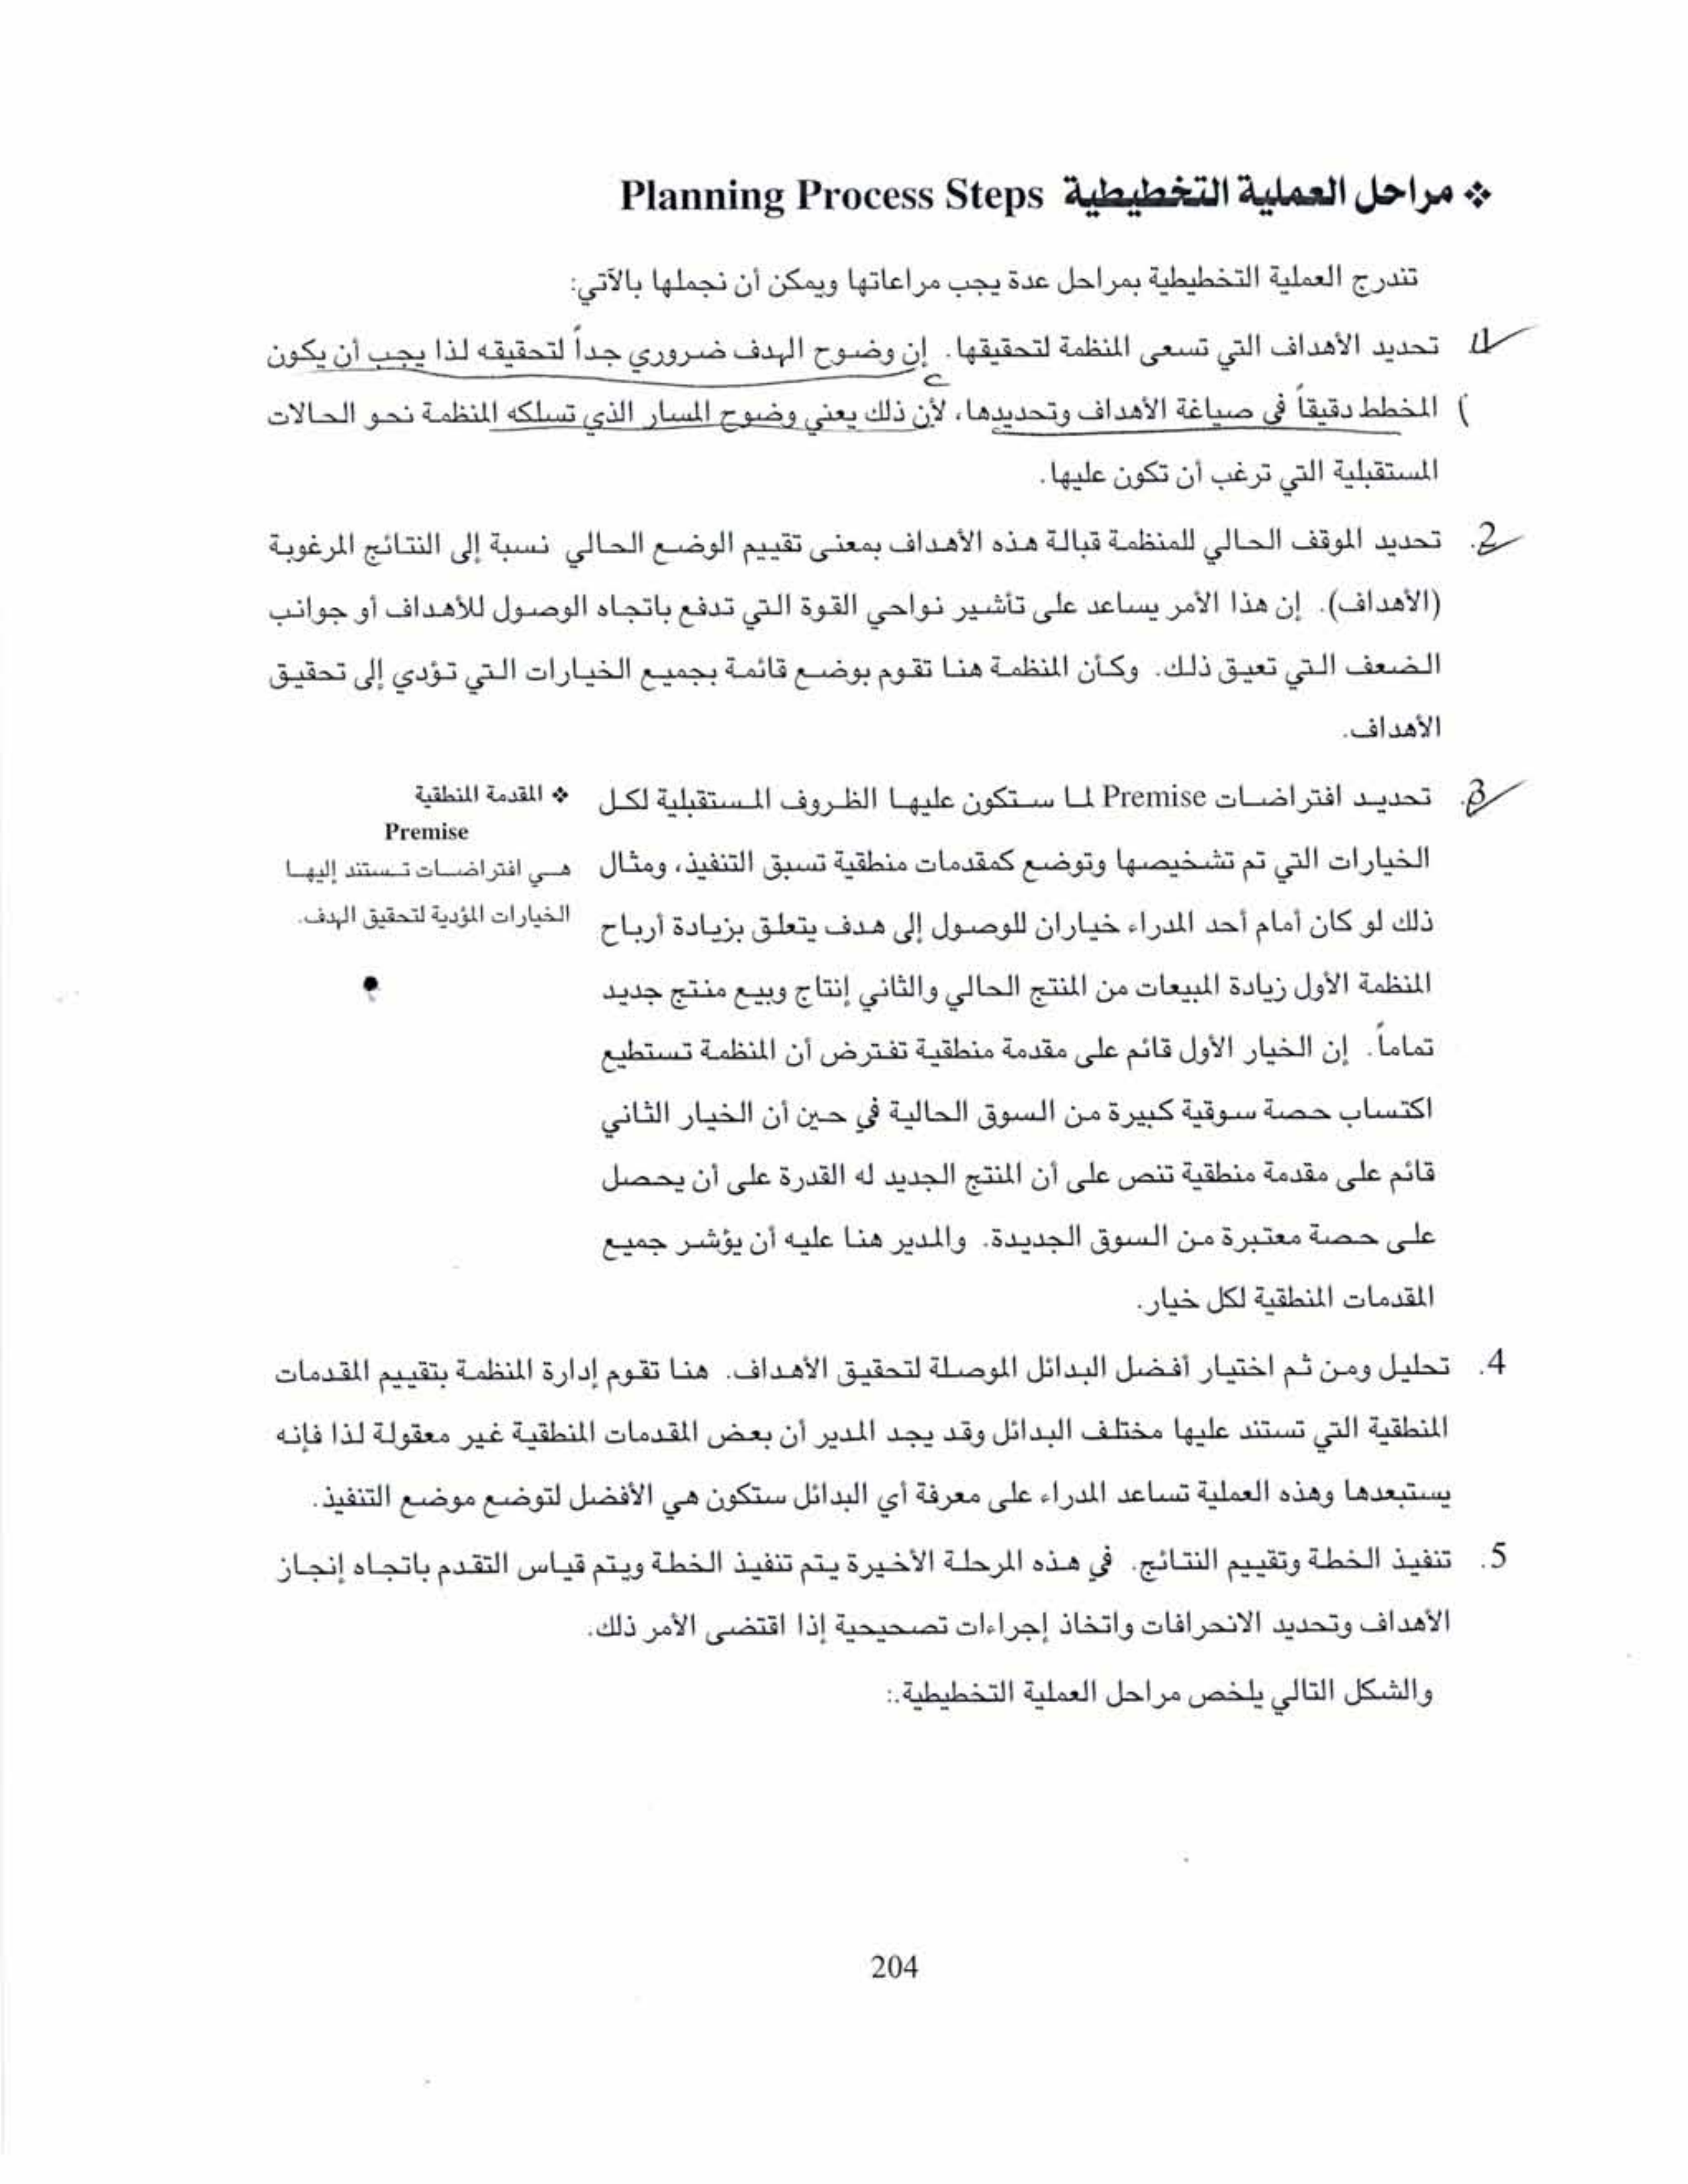 ❖ مراحل العملية التخطيطية Planning Process Steps
تندرج العملية التخطيطية بمراحل عدة يجب مراعاتها ويمكن أن نجملها بالآتي:
1. تحديد الأهداف التي تسعى المنظمة لتحقيقها. إن وضوح الهدف ضروري جداً لتحقيقه لذا يجب أن يكون
المخطط دقيقاً في صياغة الأهداف وتحديدها، لأن ذلك يعني وضوح المسار الذي تسلكه المنظمة نحو الحالات
المستقبلية التي ترغب أن تكون عليها.
2. تحديد الموقف الحالي للمنظمة قبالة هذه الأهداف بمعنى تقييم الوضع الحالي نسبة إلى النتائج المرغوبة
(الأهداف). إن هذا الأمر يساعد على تأشير نواحي القوة التي تدفع باتجاه الوصول للأهداف أو جوانب
الضعف التي تعيق ذلك. وكأن المنظمة هنا تقوم بوضع قائمة بجميع الخيارات التي تؤدي إلى تحقيق
الأهداف.
3. تحديد افتراضات Premise لما ستكون عليها الظروف المستقبلية لكل
الخيارات التي تم تشخيصها وتوضع كمقدمات منطقية تسبق التنفيذ، ومثال
ذلك لو كان أمام أحد المدراء خياران للوصول إلى هدف يتعلق بزيادة أرباح
المنظمة الأول زيادة المبيعات من المنتج الحالي والثاني إنتاج وبيع منتج جديد
تماماً. إن الخيار الأول قائم على مقدمة منطقية تفترض أن المنظمة تستطيع
اكتساب حصة سوقية كبيرة من السوق الحالية في حين أن الخيار الثاني
قائم على مقدمة منطقية تنص على أن المنتج الجديد له القدرة على أن يحصل
على حصة معتبرة من السوق الجديدة. والمدير هنا عليه أن يؤشر جميع
المقدمات المنطقية لكل خيار.
❖ المقدمة المنطقية
Premise
هي افتراضات تستند إليها
الخيارات المؤدية لتحقيق الهدف.
4. تحليل ومن ثم اختيار أفضل البدائل الموصلة لتحقيق الأهداف. هنا تقوم إدارة المنظمة بتقييم المقدمات
المنطقية التي تستند عليها مختلف البدائل وقد يجد المدير أن بعض المقدمات المنطقية غير معقولة لذا فإنه
يستبعدها وهذه العملية تساعد المدراء على معرفة أي البدائل ستكون هي الأفضل لتوضع موضع التنفيذ.
5. تنفيذ الخطة وتقييم النتائج. في هذه المرحلة الأخيرة يتم تنفيذ الخطة ويتم قياس التقدم باتجاه إنجاز
الأهداف وتحديد الانحرافات واتخاذ إجراءات تصحيحية إذا اقتضى الأمر ذلك.
والشكل التالي يلخص مراحل العملية التخطيطية.:
204